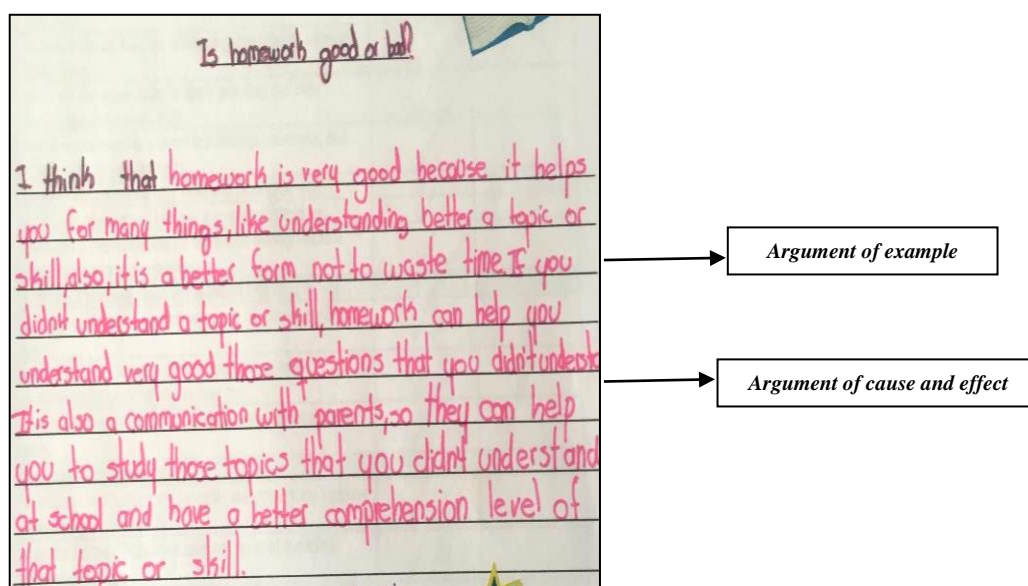 Is homework good or bad?
I think that homework is very good because it helps
you for many things, like understanding better a topic or
skill, also, it is a better form not to waste time. If you
didn't understand a topic or skill, homework can help you
understand very good those questions that you didn't understa
It is also a communication with parents, so they can help
you to study those topics that you didn't understand
at school and have a better comprehension level of
that topic or skill.
Argument of example
Argument of cause and effect